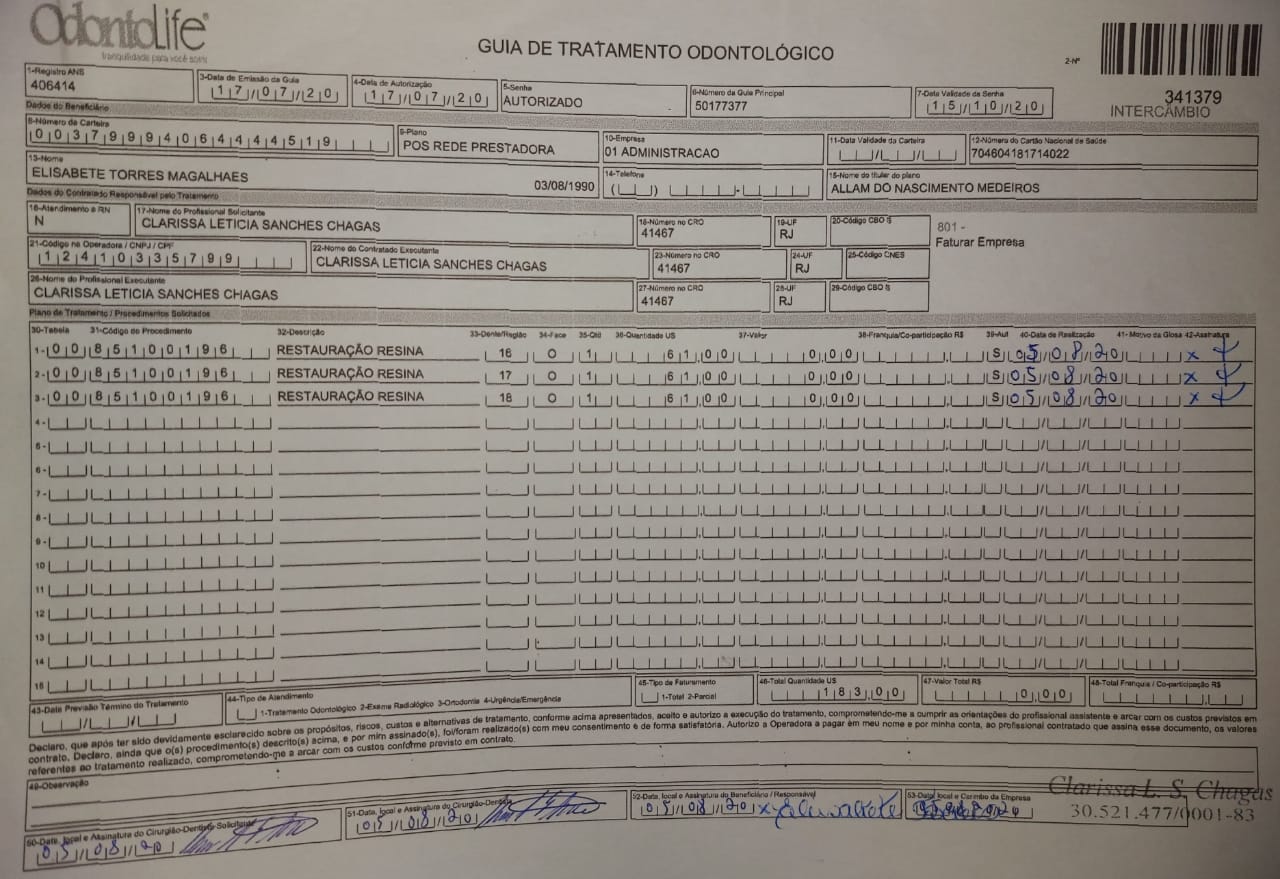 OdontoLife®
tranquilidade para você sorrir
GUIA DE TRATAMENTO ODONTOLÓGICO
2-Nº
341379
INTERCÂMBIO
1-Registro ANS
406414
3-Data de Emissão da Guia
17/07/20
4-Data de Autorização
17/07/20
5-Senha
AUTORIZADO
6-Número da Guia Principal
50177377
7-Data Validade da Senha
15/10/20
Dados do Beneficiário
8-Número da Carteira
00379994064444519
9-Plano
POS REDE PRESTADORA
10-Empresa
01 ADMINISTRACAO
11-Data Validade da Carteira
12-Número do Cartão Nacional de Saúde
704604181714022
13-Nome
ELISABETE TORRES MAGALHAES 03/08/1990
14-Telefone
15-Nome do titular do plano
ALLAM DO NASCIMENTO MEDEIROS
Dados do Contratado Responsável pelo Tratamento
16-Atendimento a RN
N
17-Nome do Profissional Solicitante
CLARISSA LETICIA SANCHES CHAGAS
18-Número no CRO
41467
19-UF
RJ
20-Código CBO S
801 -
Faturar Empresa
21-Código na Operadora / CNPJ / CPF
12410335799
22-Nome do Contratado Executante
CLARISSA LETICIA SANCHES CHAGAS
23-Número no CRO
41467
24-UF
RJ
25-Código CNES
26-Nome do Profissional Executante
CLARISSA LETICIA SANCHES CHAGAS
27-Número no CRO
41467
28-UF
RJ
29-Código CBO S
Plano de Tratamento / Procedimentos Solicitados
30-Tabela 31-Código do Procedimento 32-Descrição 33-Dente/Região 34-Face 35-Qtd 36-Quantidade US 37-Valor 38-Franquia/Co-participação R$ 39-Aut 40-Data de Realização 41-Motivo da Glosa 42-Assinatura
1-00 85100196 RESTAURAÇÃO RESINA 16 O 1 61,00 0,00 S 05/08/20 x
2-00 85100196 RESTAURAÇÃO RESINA 17 O 1 61,00 0,00 S 05/08/20 x
3-00 85100196 RESTAURAÇÃO RESINA 18 O 1 61,00 0,00 S 05/08/20 x
4-
5-
6-
7-
8-
9-
10
11
12
13
14
15
43-Data Previsão Término do Tratamento
44-Tipo de Atendimento
1-Tratamento Odontológico 2-Exame Radiológico 3-Ortodontia 4-Urgência/Emergência
45-Tipo de Faturamento
1-Total 2-Parcial
46-Total Quantidade US
183,00
47-Valor Total R$
0,00
48-Total Franquia / Co-participação R$
Declaro, que após ter sido devidamente esclarecido sobre os propósitos, riscos, custos e alternativas de tratamento, conforme acima apresentados, aceito e autorizo a execução do tratamento, comprometendo-me a cumprir as orientações do profissional assistente e arcar com os custos previstos em
contrato. Declaro, ainda que o(s) procedimento(s) descrito(s) acima, e por mim assinado(s), foi/foram realizado(s) com meu consentimento e de forma satisfatória. Autorizo a Operadora a pagar em meu nome e por minha conta, ao profissional contratado que assina esse documento, os valores
referentes ao tratamento realizado, comprometendo-me a arcar com os custos conforme previsto em contrato.
49-Observação
50-Data, local e Assinatura do Cirurgião-Dentista Solicitante
05/08/20
51-Data, local e Assinatura do Cirurgião-Dentista
05/08/20
52-Data, local e Assinatura do Beneficiário / Responsável
05/08/20 x
53-Data, local e Carimbo da Empresa
Clarissa L. S. Chagas
30.521.477/0001-83